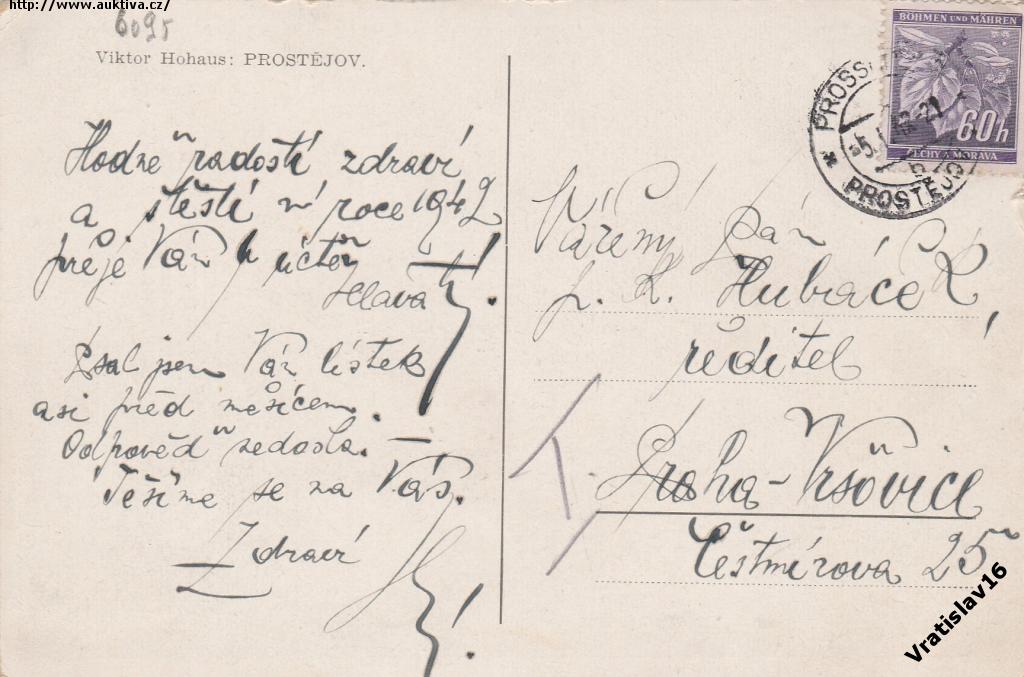 http://www.auktiva.cz/
6095
Viktor Hohaus: PROSTĚJOV.
Hodně radostí zdraví
a štěstí v roce 1942
přeje Vám v úctě
Hlava
Psal jsem Vám lístek
asi před měsícem.
Odpověď nedošla.
Těšíme se na Vás.
Zdraví
BÖHMEN UND MÄHREN
60h
ČECHY A MORAVA
PROSTĚJOV
Vážený pán
L. K. Hubáček,
ředitel
Praha-Vršovice
Čestmírova 25
Vratislav16